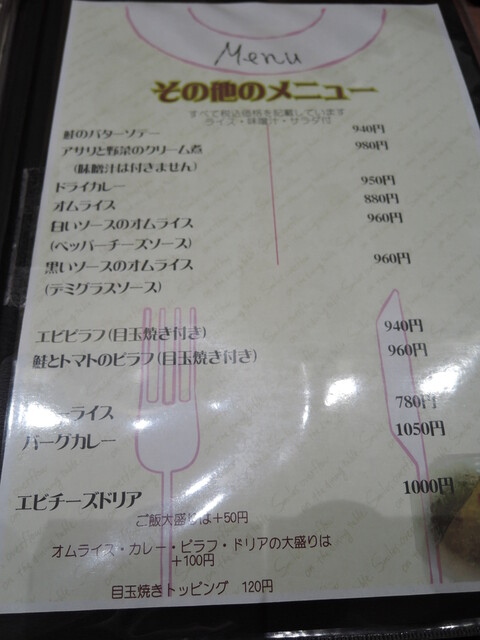 Menu
その他のメニュー
すべて税込価格を記載しています
ライス・味噌汁・サラダ付
鮭のバターソテー 940円
アサリと野菜のクリーム煮 980円
(味噌汁は付きません)
ドライカレー 950円
オムライス 880円
白いソースのオムライス 960円
(ペッパーチーズソース)
黒いソースのオムライス 960円
(デミグラスソース)
エビピラフ(目玉焼き付き) 940円
鮭とトマトのピラフ(目玉焼き付き) 960円
ーライス 780円
バーグカレー 1050円
エビチーズドリア 1000円
ご飯大盛りは+50円
オムライス・カレー・ピラフ・ドリアの大盛りは
+100円
目玉焼きトッピング 120円